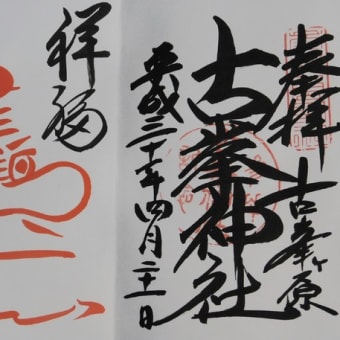 奉拝
古峯ヶ原
古峯神社
平成三十年四月二十一日
祥福